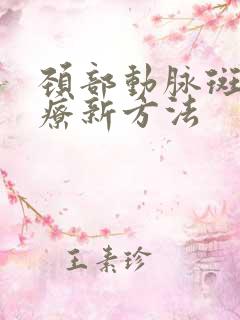 頚部動脉斑
療新方法
王素珍